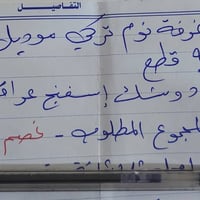 التفاصيل
غرفة نوم تركي موديل
٩ قطع
دوشك إسفنج عراقي
المجموع المطلوب - خصم